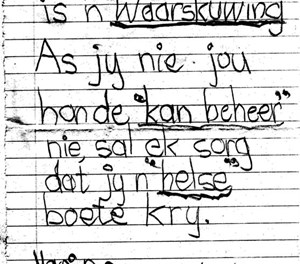 is 'n Waarskuwing
As jy nie jou
honde "kan beheer"
nie, sal ek sorg
dat jy 'n "helse"
boete kry.